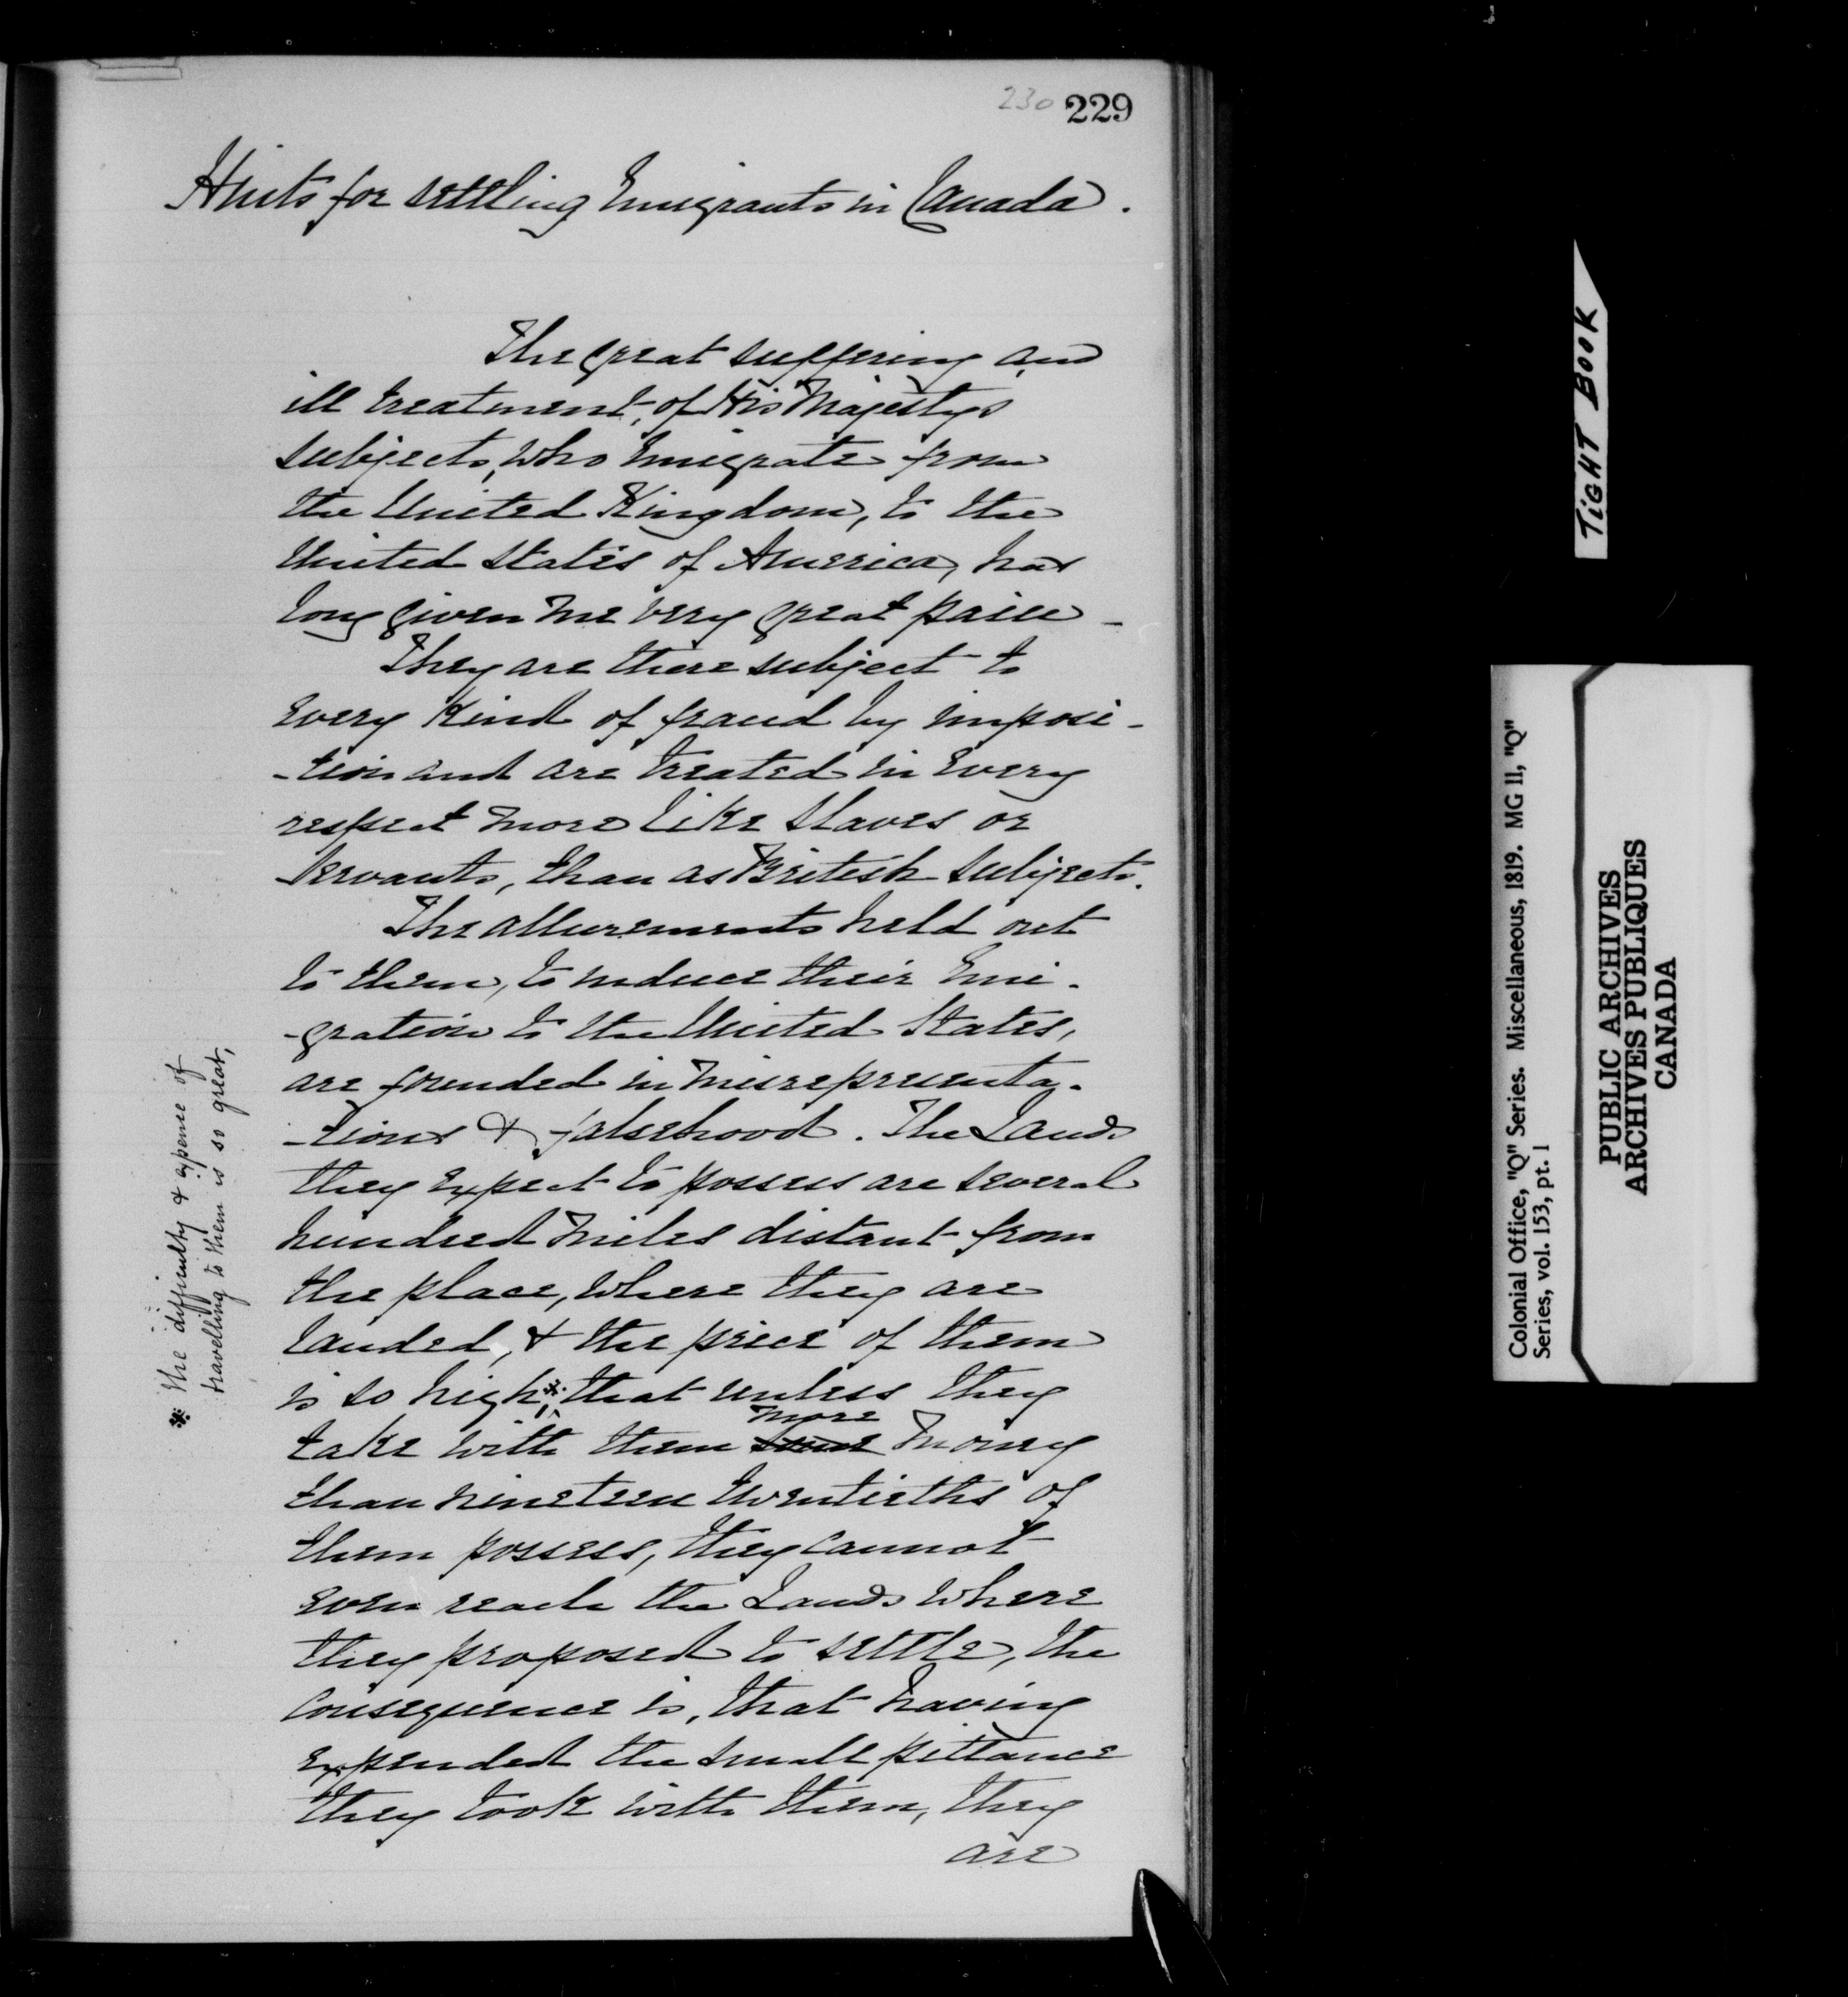 230 229
Hints for settling Emigrants in Canada.
The great suffering and
ill treatment, of His Majestys
subjects, who Emigrate from
the United Kingdom, to the
United States of America, has
long given me very great pain -
They are there subject to
every kind of fraud by imposi-
-tion and are treated in every
respect more like Slaves or
Servants, than as British Subjects.
The allurements held out
to them, to induce their Emi-
-gration to the United States,
are founded in misrepresenta-
-tions & falsehood. The Lands
they expect to possess are several
hundred miles distant from
the place, where they are
landed, & the price of them
is so high,* that unless they
more
take with them some money
than nineteen twentieths of
them possess, they cannot
even reach the Lands where
they proposed to settle, the
consequence is, that having
expended the small pittance
they took with them, they
are
* the difficulty & expense of
travelling to them is so great,
TIGHT BOOK
Colonial Office, "Q" Series. Miscellaneous, 1819. MG 11, "Q"
Series, vol. 153, pt. 1
PUBLIC ARCHIVES
ARCHIVES PUBLIQUES
CANADA